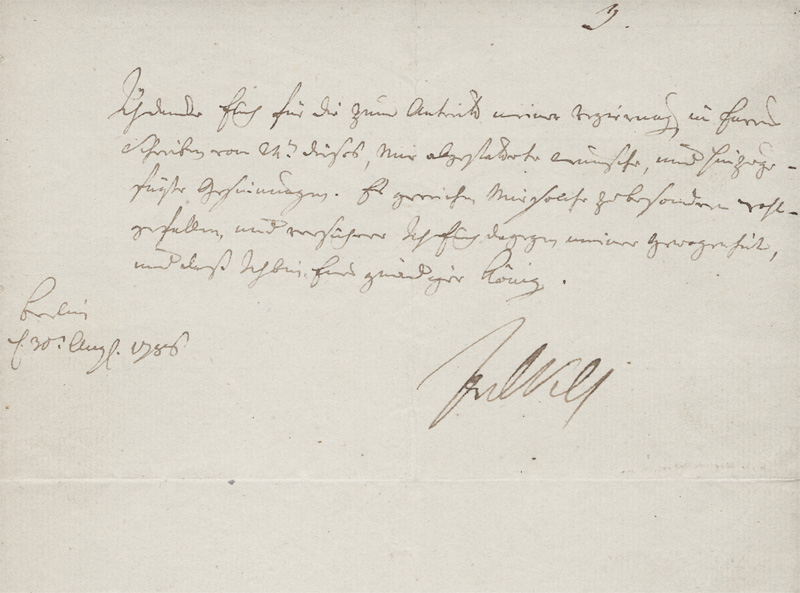 9.
Ich dancke Euch für die zum Antritt meiner Regierung, in Eurem
Schreiben vom 24t. dieses, Mir abgestattete wünsche, und hinzuge-
fügte Gesinnungen. Es gereichen Mir solche zu besondern wohl-
gefallen, und versichere Ich Euch dagegen meiner Gewogenheit,
und daß Ich bin Euer gnädiger König.
Berlin
d. 30t. Aug. 1786